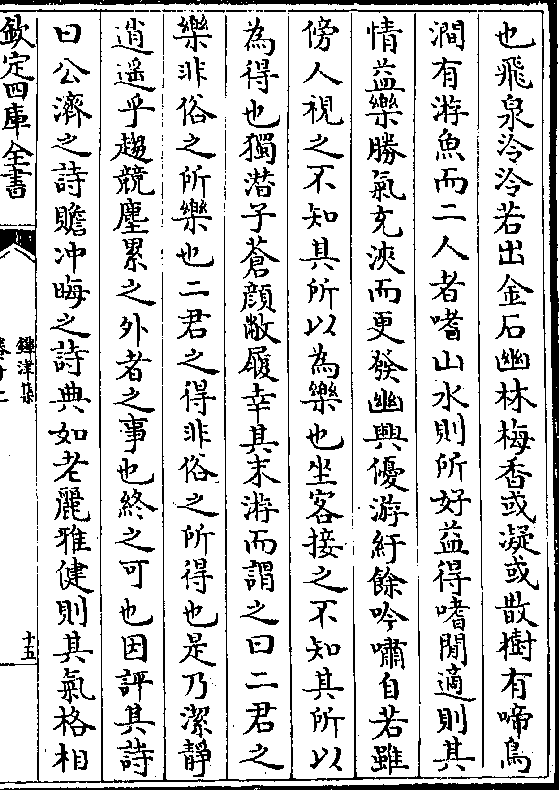 也飛泉泠泠若出金石幽林梅香或凝或散樹有啼鳥
澗有游魚而二人者嗜山水則所好益得嗜閒適則其
情益樂勝氣充浹而更發幽興優游紆餘吟嘯自若雖
傍人視之不知其所以為樂也坐客接之不知其所以
為得也獨潛子蒼顔敝履幸其末游而謂之曰二君之
樂非俗之所樂也二君之得非俗之所得也是乃潔靜
逍遥乎趨競塵累之外者之事也終之可也因評其詩
曰公濟之詩贍冲晦之詩典如老麗雅健則其氣格相
欽定四庫全書
鐔津集
十五